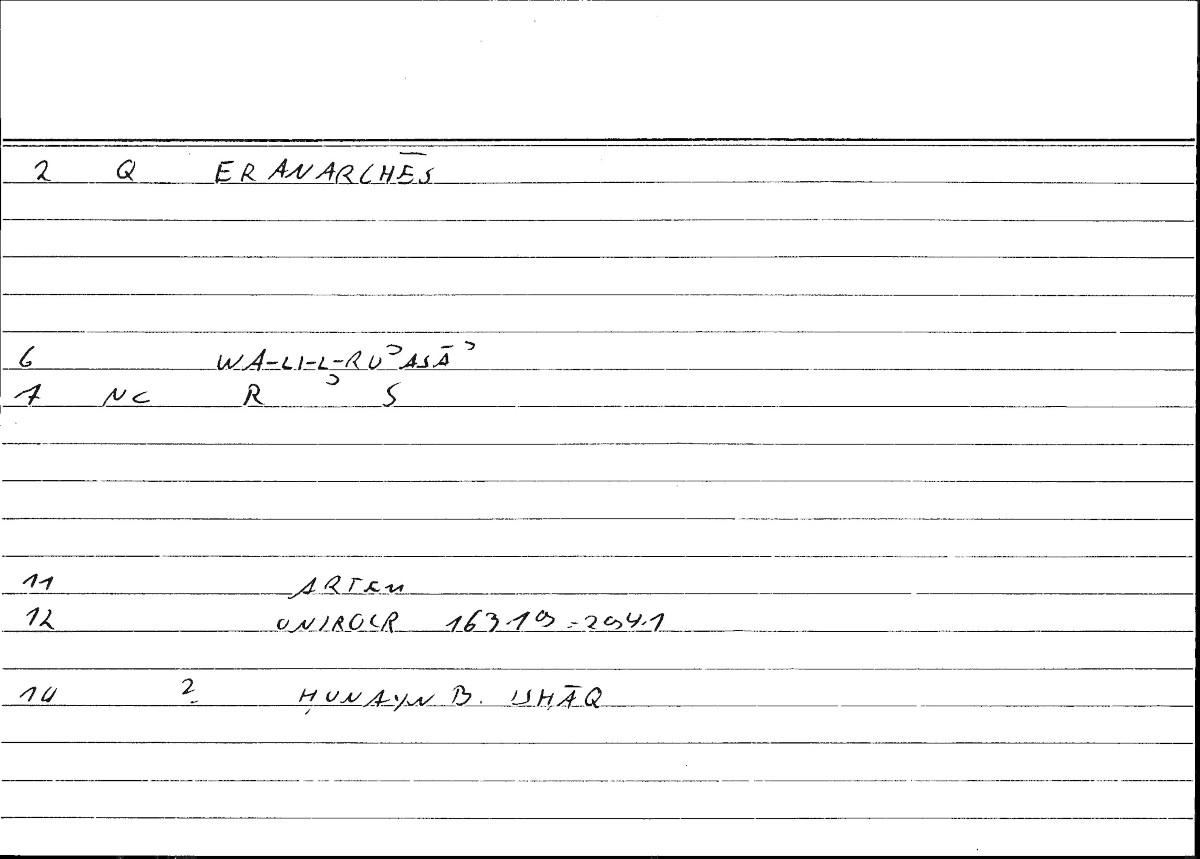 2 Q ERANARCHĒS
6 WA-LI-L-RUʾASĀʾ
7 NC R ʾ S
11 ARTEM
12 ONIROCR 163.19 = 294.1
14 ? ḤUNAYN B. ISḤĀQ